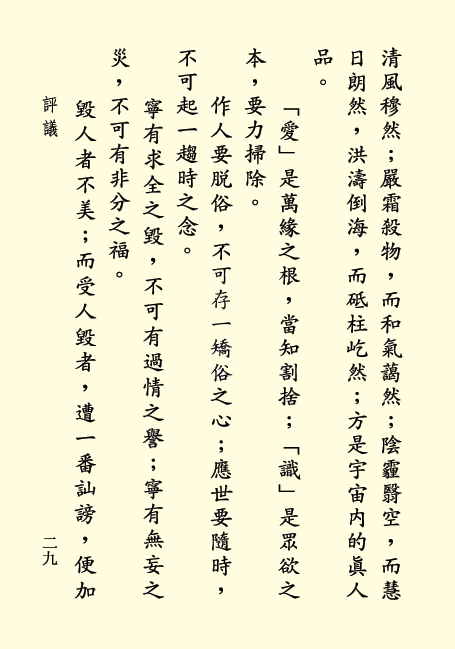 清風穆然；嚴霜殺物，而和氣藹然；陰霾翳空，而慧
日朗然，洪濤倒海，而砥柱屹然；方是宇宙內的眞人
品。
「愛」是萬緣之根，當知割捨；「識」是眾欲之
本，要力掃除。
作人要脫俗，不可存一矯俗之心；應世要隨時，
不可起一趨時之念。
寧有求全之毀，不可有過情之譽；寧有無妄之
災，不可有非分之福。
毀人者不美；而受人毀者，遭一番訕謗，便加
評議
二九